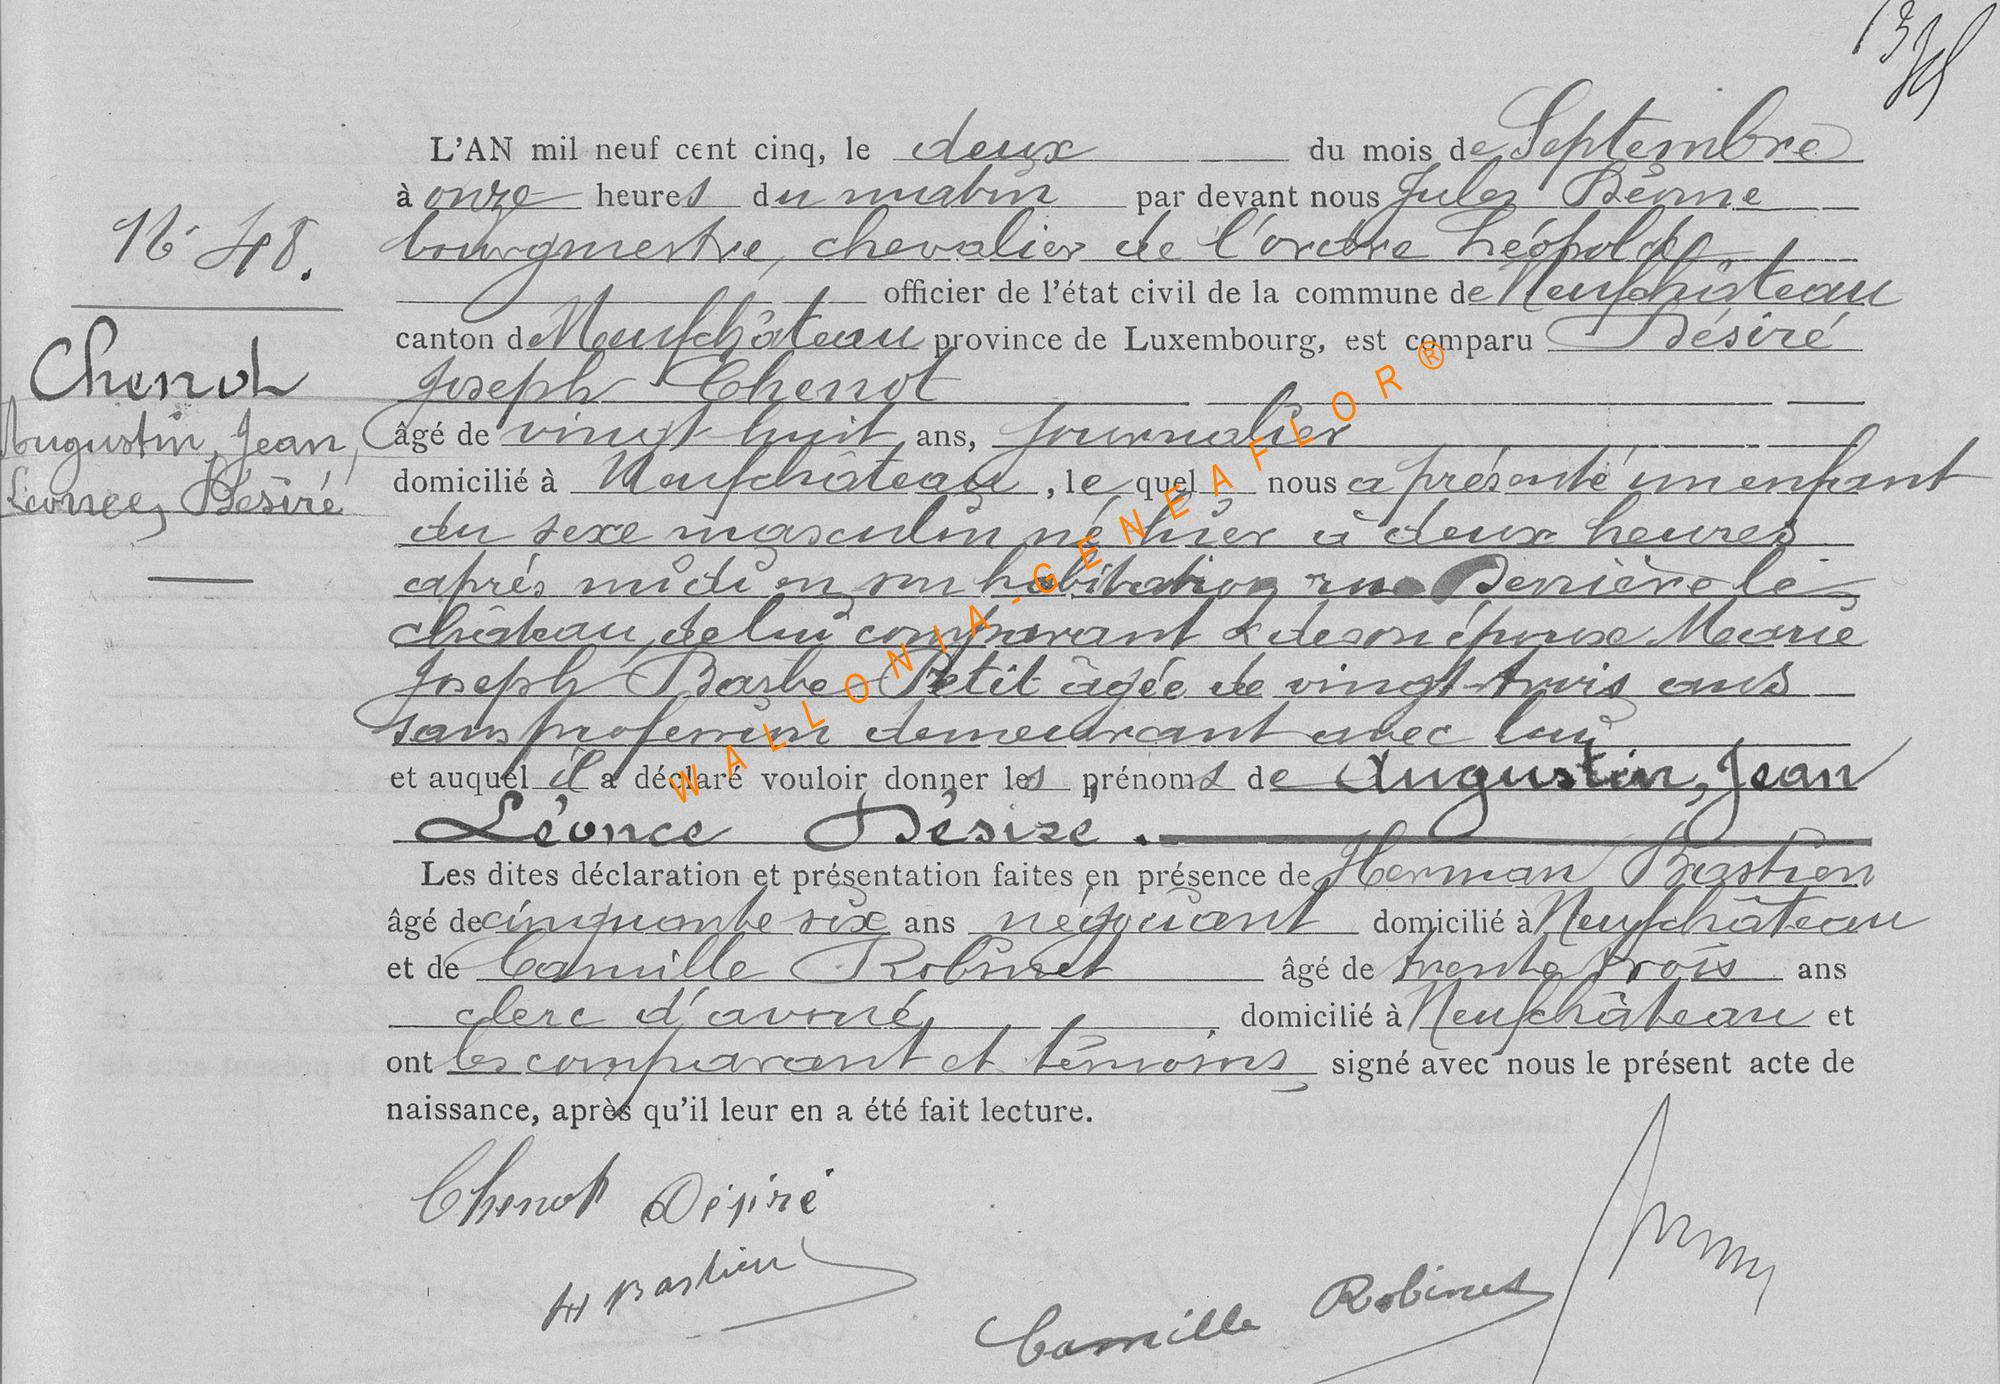 L'AN mil neuf cent cinq, le deux du mois de Septembre
à onze heures du matin par devant nous Jules
bourgmestre, chevalier de l'ordre Léopold,
officier de l'état civil de la commune de Neufchâteau
canton de Neufchâteau province de Luxembourg, est comparu Désiré
Joseph Chenot
âgé de vingt-huit ans, journalier
domicilié à Neufchâteau, lequel nous a présenté un enfant
du sexe masculin né hier à deux heures
après midi en son habitation rue Derrière le
château, de lui comparant & de son épouse Marie
Joseph Barbe Petit âgée de vingt-trois ans
sans profession demeurant avec lui
et auquel il a déclaré vouloir donner les prénoms de Augustin, Jean
Léonce Désiré.
Les dites déclaration et présentation faites en présence de Herman Bastien
âgé de cinquante six ans négociant domicilié à Neufchâteau
et de Camille Robinet âgé de trente trois ans
clerc d'avoué, domicilié à Neufchâteau et
ont les comparant et témoins signé avec nous le présent acte de
naissance, après qu'il leur en a été fait lecture.
N° 48.
Chenot
Augustin, Jean,
Léonce, Désiré
Chenot Désiré
H Bastien
Camille Robinet
WALLONIA-GENEAFLOR®